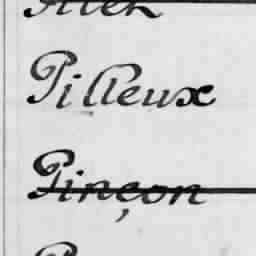 Pilleux
Pinçon